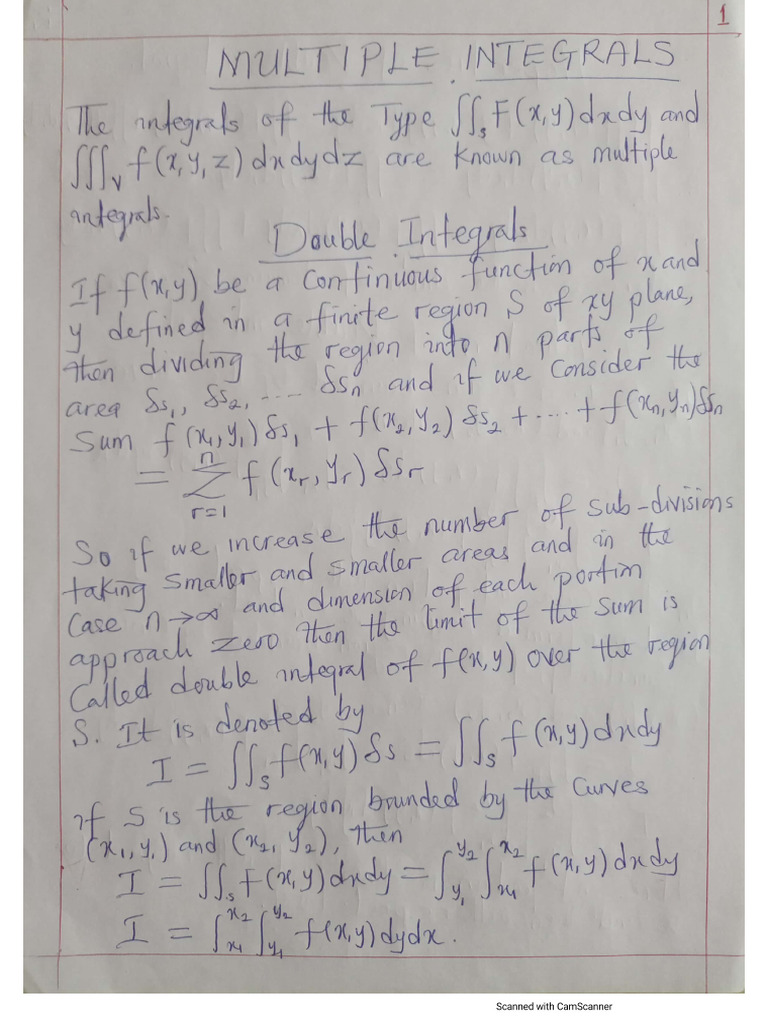 1
MULTIPLE INTEGRALS
The integrals of the Type ∬ₛ F(x,y) dxdy and
∭ᵥ f(x,y,z) dxdydz are known as multiple
integrals.
Double Integrals
If f(x,y) be a continuous function of x and
y defined in a finite region S of xy plane,
then dividing the region into n parts of
area δs₁, δs₂, ---- δsₙ and if we consider the
Sum f(x₁,y₁)δs₁ + f(x₂,y₂)δs₂ + ---- + f(xₙ,yₙ)δsₙ
= ∑ⁿᵣ₌₁ f(xᵣ,yᵣ)δsᵣ
So if we increase the number of sub-divisions
taking smaller and smaller areas and in the
case n→∞ and dimension of each portion
approach zero then the limit of the sum is
called double integral of f(x,y) over the region
S. It is denoted by
I = ∬ₛ f(x,y)δs = ∬ₛ f(x,y)dxdy
if S is the region bounded by the curves
(x₁,y₁) and (x₂,y₂), then
I = ∬ₛ f(x,y)dxdy = ∫_{y₁}^{y₂} ∫_{x₁}^{x₂} f(x,y)dxdy
I = ∫_{x₁}^{x₂} ∫_{y₁}^{y₂} f(x,y)dydx.
Scanned with CamScanner